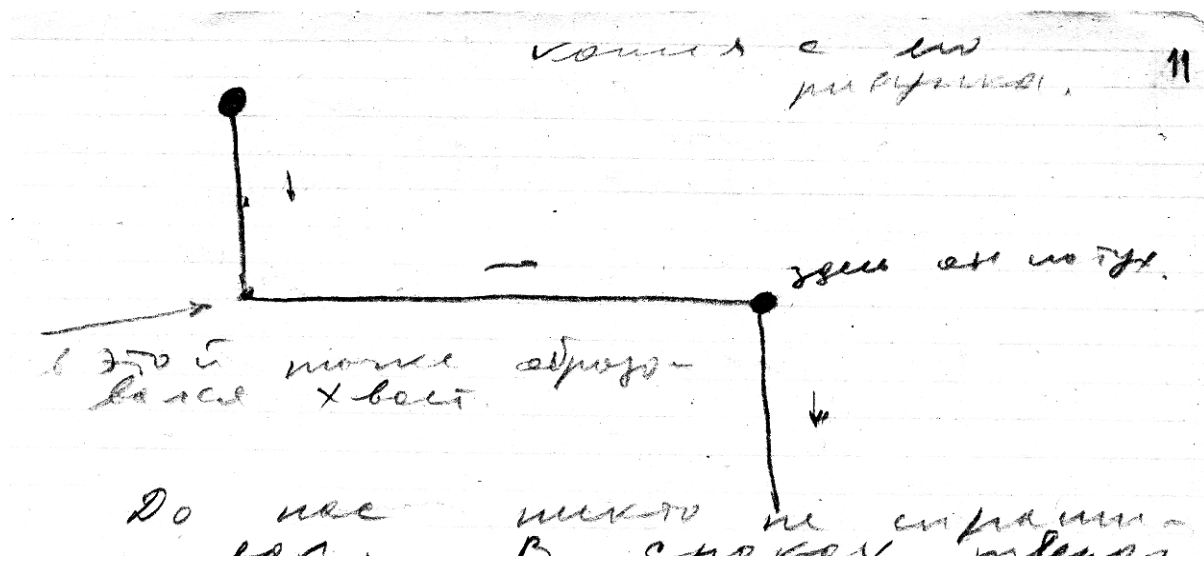 копия с его
рисунка.
11
здесь он потух.
в этой точке образо-
вался хвост.
До нас никто не спраши-
вал. В сроках